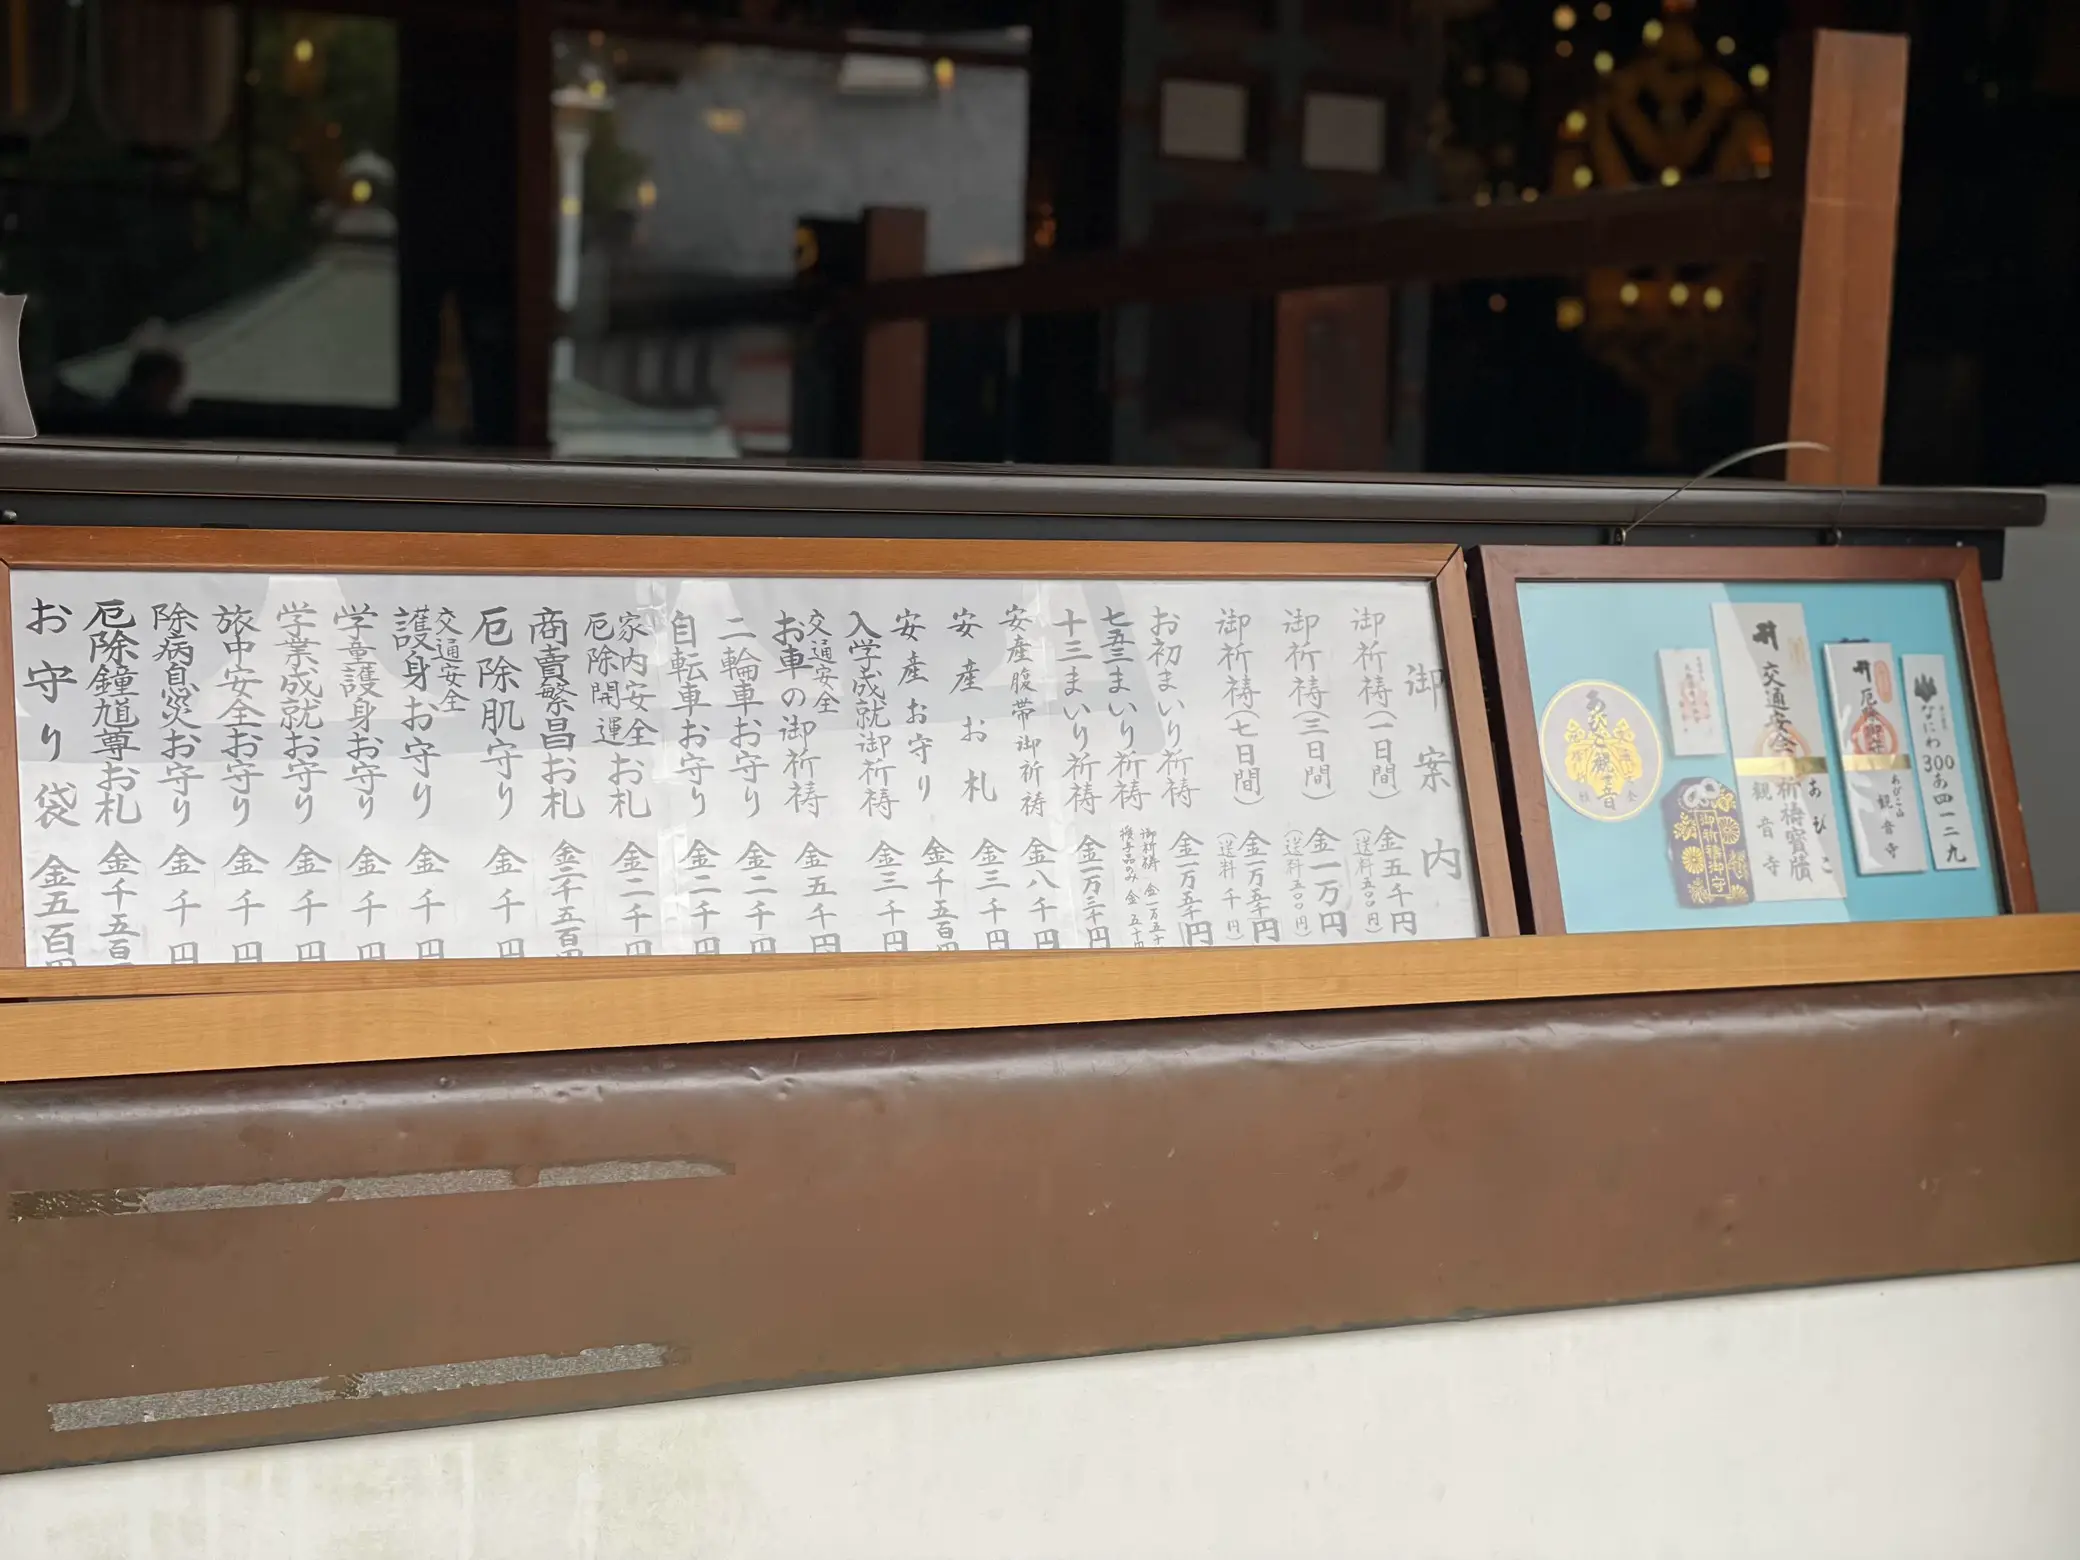 御案内
御祈祷(一日間) 金五千円
(送料五〇〇円)
御祈祷(三日間) 金一万円
(送料五〇〇円)
御祈祷(七日間) 金一万五千円
(送料千円)
お初まいり祈祷
七五三まいり祈祷
十三まいり祈祷
金一万五千円
御祈祷 金一万五千
授与品のみ 金五千円
金一万二千円
安産腹帯御祈祷 金八千円
安産お札 金三千円
安産お守り 金千五百円
入学成就御祈祷 金三千円
交通安全
お車の御祈祷 金五千円
二輪車お守り 金二千円
自転車お守り 金二千円
家内安全
厄除開運
お札 金二千円
商賣繁昌お札 金二千五百円
厄除肌守り 金千円
交通安全
護身お守り 金千円
学童護身お守り 金千円
学業成就お守り 金千円
旅中安全お守り 金千円
除病息災お守り 金千円
厄除鐘馗尊お札 金千五百
お守り袋 金五百円
なにわ
300
あ四一二九
あびこ山
観音寺
交通安全祈祷寳牘
あびこ
観音寺
御祈祷御守
あびこ観音